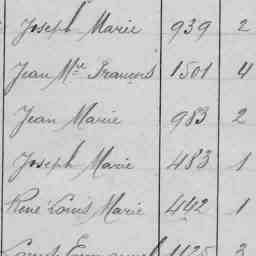 Joseph Marie 939 2
Jean Mie François 1501 4
Jean Marie 983 2
Joseph Marie 483 1
René Louis Marie 442 1
Louis Emmanuel 1125 3